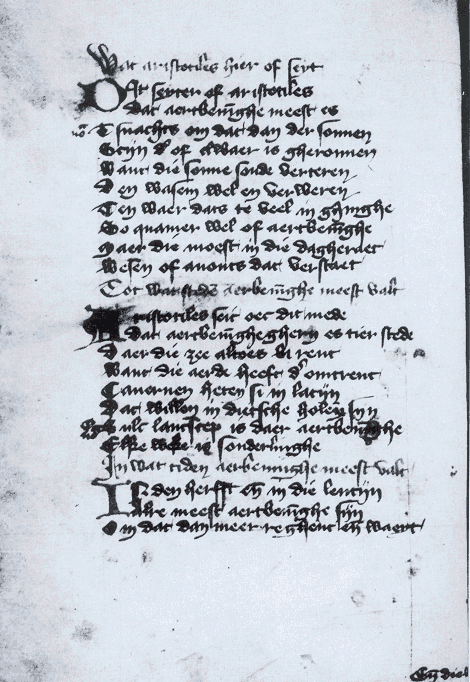 Wat aristotiles hier of seyt
Dat seyter of aristotiles
Dat aertbevīghe meest es
Tsnachts om dat dan der sonnen
Scijn d' of claer is gheronnen
Want die sonne soude verteren
Den wasem wel en verweren
Ten waer dats te veel in ghinghe
So quamer wel of aertbevīghe
Maer die moest in die dagheraet
Wesen of avonts dat verstaet
Tot wat stedē aertbevinghe meest valt
Aristotiles seit oec dit mede
Dat aertbevīghe ghern es tier stede
Daer die zee altoes bi rent
Want die aerde heeft d' omtrent
Cavernen heten si in latijn
Dat willen in dietsche holen sijn
Sulc lantscep is daer aertbevīghe
Elke weke is sonderlīghe
In wat tiden aertbevinghe meest valt
In den herfst eñ in die lentijn
Alre meest aertbevīghe sijn
Om dat dan meer reghent eñ waeyt
Eñ die